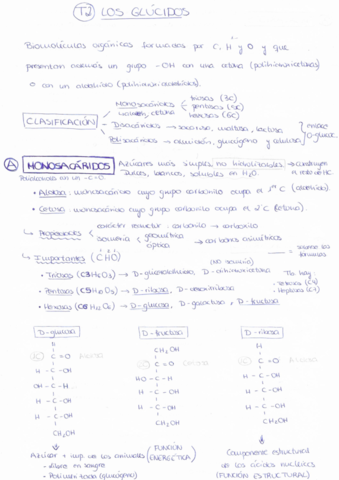 LOS GLÚCIDOS
Biomoléculas orgánicas formadas por C, H y O y que
presentan además un grupo -OH con una cetona (polihidroxicetona)
o con un aldehído (polihidroxialdehído).
CLASIFICACIÓN
Monosacáridos
triosas (3C)
pentosas (5C)
hexosas (6C)
Disacáridos → sacarosa, maltosa, lactosa
Polisacáridos → almidón, glucógeno y celulosa
enlace
O-glucos.
A MONOSACÁRIDOS
Azúcares más simples, no hidrolizables → Constituyen
el resto de HC.
dulces, blancos, solubles en H₂O.
• Aldosa: monosacárido cuyo grupo carbonilo ocupa el 1ᵉʳ C (aldehído)
• Cetosa: monosacárido cuyo grupo carbonilo ocupa el 2º C (cetona).
↳ Propiedades
carácter reductor: carbonilo → carboxilo
isomería
geométrica
óptica → carbonos asimétricos
↳ Importantes (CHO)
• Triosas (C3H6O3) → D-gliceraldehído, D-dihidroxiacetona
• Pentosas (C5H10O5) → D-ribosa, D-desoxirribosa
• Hexosas (C6H12O6) → D-glucosa, D-galactosa, D-fructosa
Tb. hay:
- tetrosas (C4)
- Heptosas (C7)
D-glucosa
D-fructosa
D-ribosa
H
CH₂OH
H
C = O
C = O
C = O
H - C - OH
HO - C - H
H - C - OH
OH - C - H
H - C - OH
H - C - OH
H - C - OH
H - C - OH
H - C - OH
H - C - OH
CH₂OH
CH₂OH
CH₂OH
Azúcar + imp de los animales
(FUNCIÓN
ENERGÉTICA)
- libre en sangre
- Polimerizada (glucógeno)
Componente estructural
de los ácidos nucleicos
(FUNCIÓN ESTRUCTURAL)